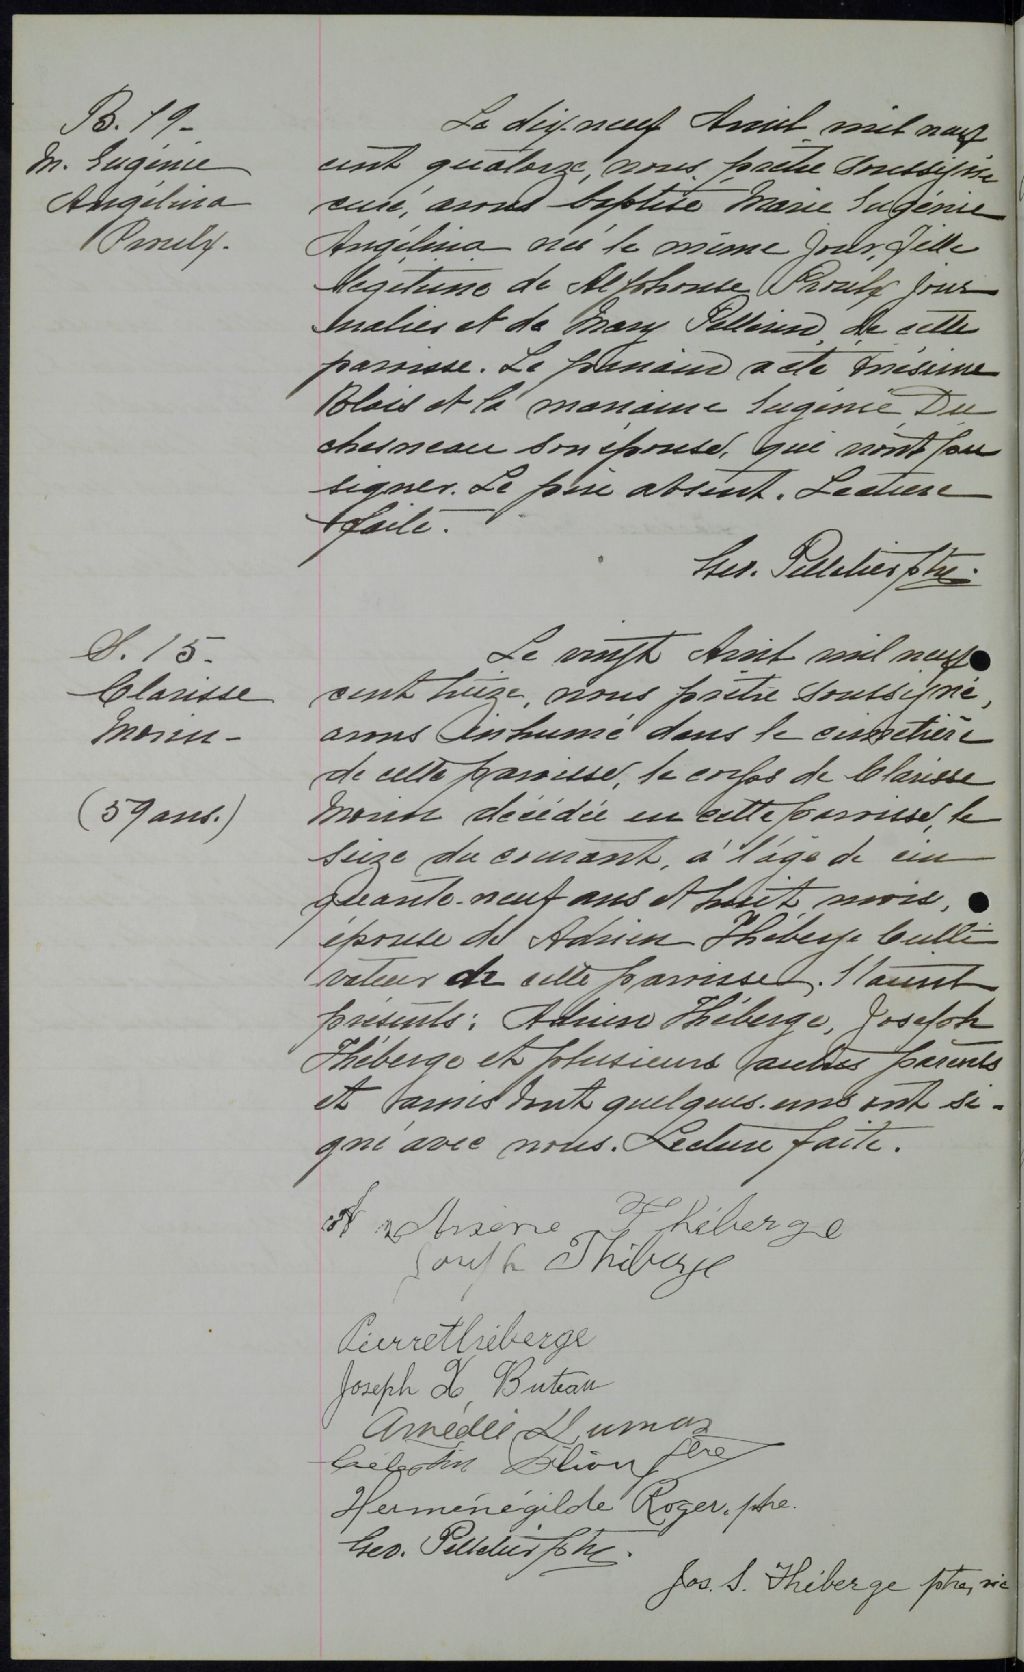 B. 19-
M. Eugénie
Angélina
Proulx.
Le dix-neuf Avril mil neuf
cent quatorze, nous, prêtre soussigné
curé, avons baptisé Marie Eugénie
Angélina née le même jour, fille
légitime de Alphonse Proulx jour
nalier et de Mary Pellerin, de cette
paroisse. Le parrain a été Onésime
Blais et la marraine Eugénie Du
chesneau son épouse, qui n'ont su
signer. Le père absent. Lecture
faite.
Geo. Pelletier ptre.
S. 15-
Clarisse
Morin-
(59 ans.)
Le vingt Avril mil neuf
cent treize, nous prêtre soussigné,
avons inhumé dans le cimetière
de cette paroisse, le corps de Clarisse
Morin décédée en cette paroisse, le
seize du courant, à l'âge de cin
quante-neuf ans et huit mois,
épouse de Adrien Théberge Culti
vateur de cette paroisse. Etaient
présents: Adrien Théberge, Joseph
Théberge et plusieurs autres parents
et amis dont quelques-uns ont si-
gné avec nous. Lecture faite.
Arsène Théberge
Joseph Théberge
Pierre théberge
Joseph X, Buteau
Amédée Dumas
Célestin Dion ptre
Herménégilde Roger, ptre.
Geo. Pelletier ptre.
Jos. S. Théberge ptre, vic